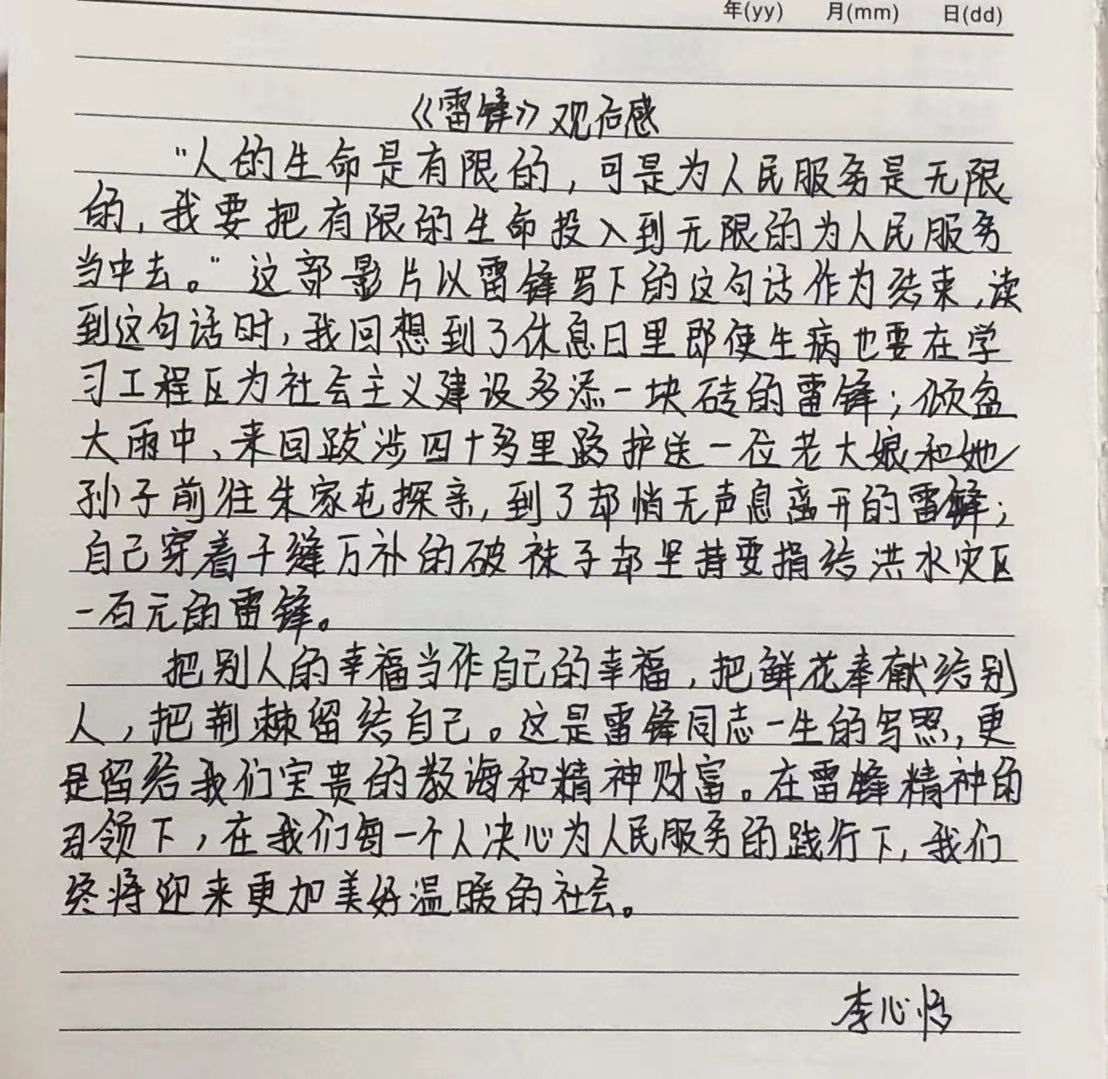 年(yy) 月(mm) 日(dd)
《雷锋》观后感
“人的生命是有限的，可是为人民服务是无限
的，我要把有限的生命投入到无限的为人民服务
当中去。”这部影片以雷锋写下的这句话作为结束，读
到这句话时，我回想到了休息日里即使生病也要在学
习工程区为社会主义建设多添一块砖的雷锋；倾盆
大雨中、来回跋涉四十多里路护送一位老大娘和她
孙子前往朱家屯探亲，到了却悄无声息离开的雷锋；
自己穿着千缝万补的破袜子却坚持要捐给洪水灾区
一百元的雷锋。
把别人的幸福当作自己的幸福，把鲜花奉献给别
人，把荆棘留给自己。这是雷锋同志一生的写照，更
是留给我们宝贵的教诲和精神财富。在雷锋精神的
引领下，在我们每一个人决心为人民服务的践行下，我们
终将迎来更加美好温暖的社会。
李心悟